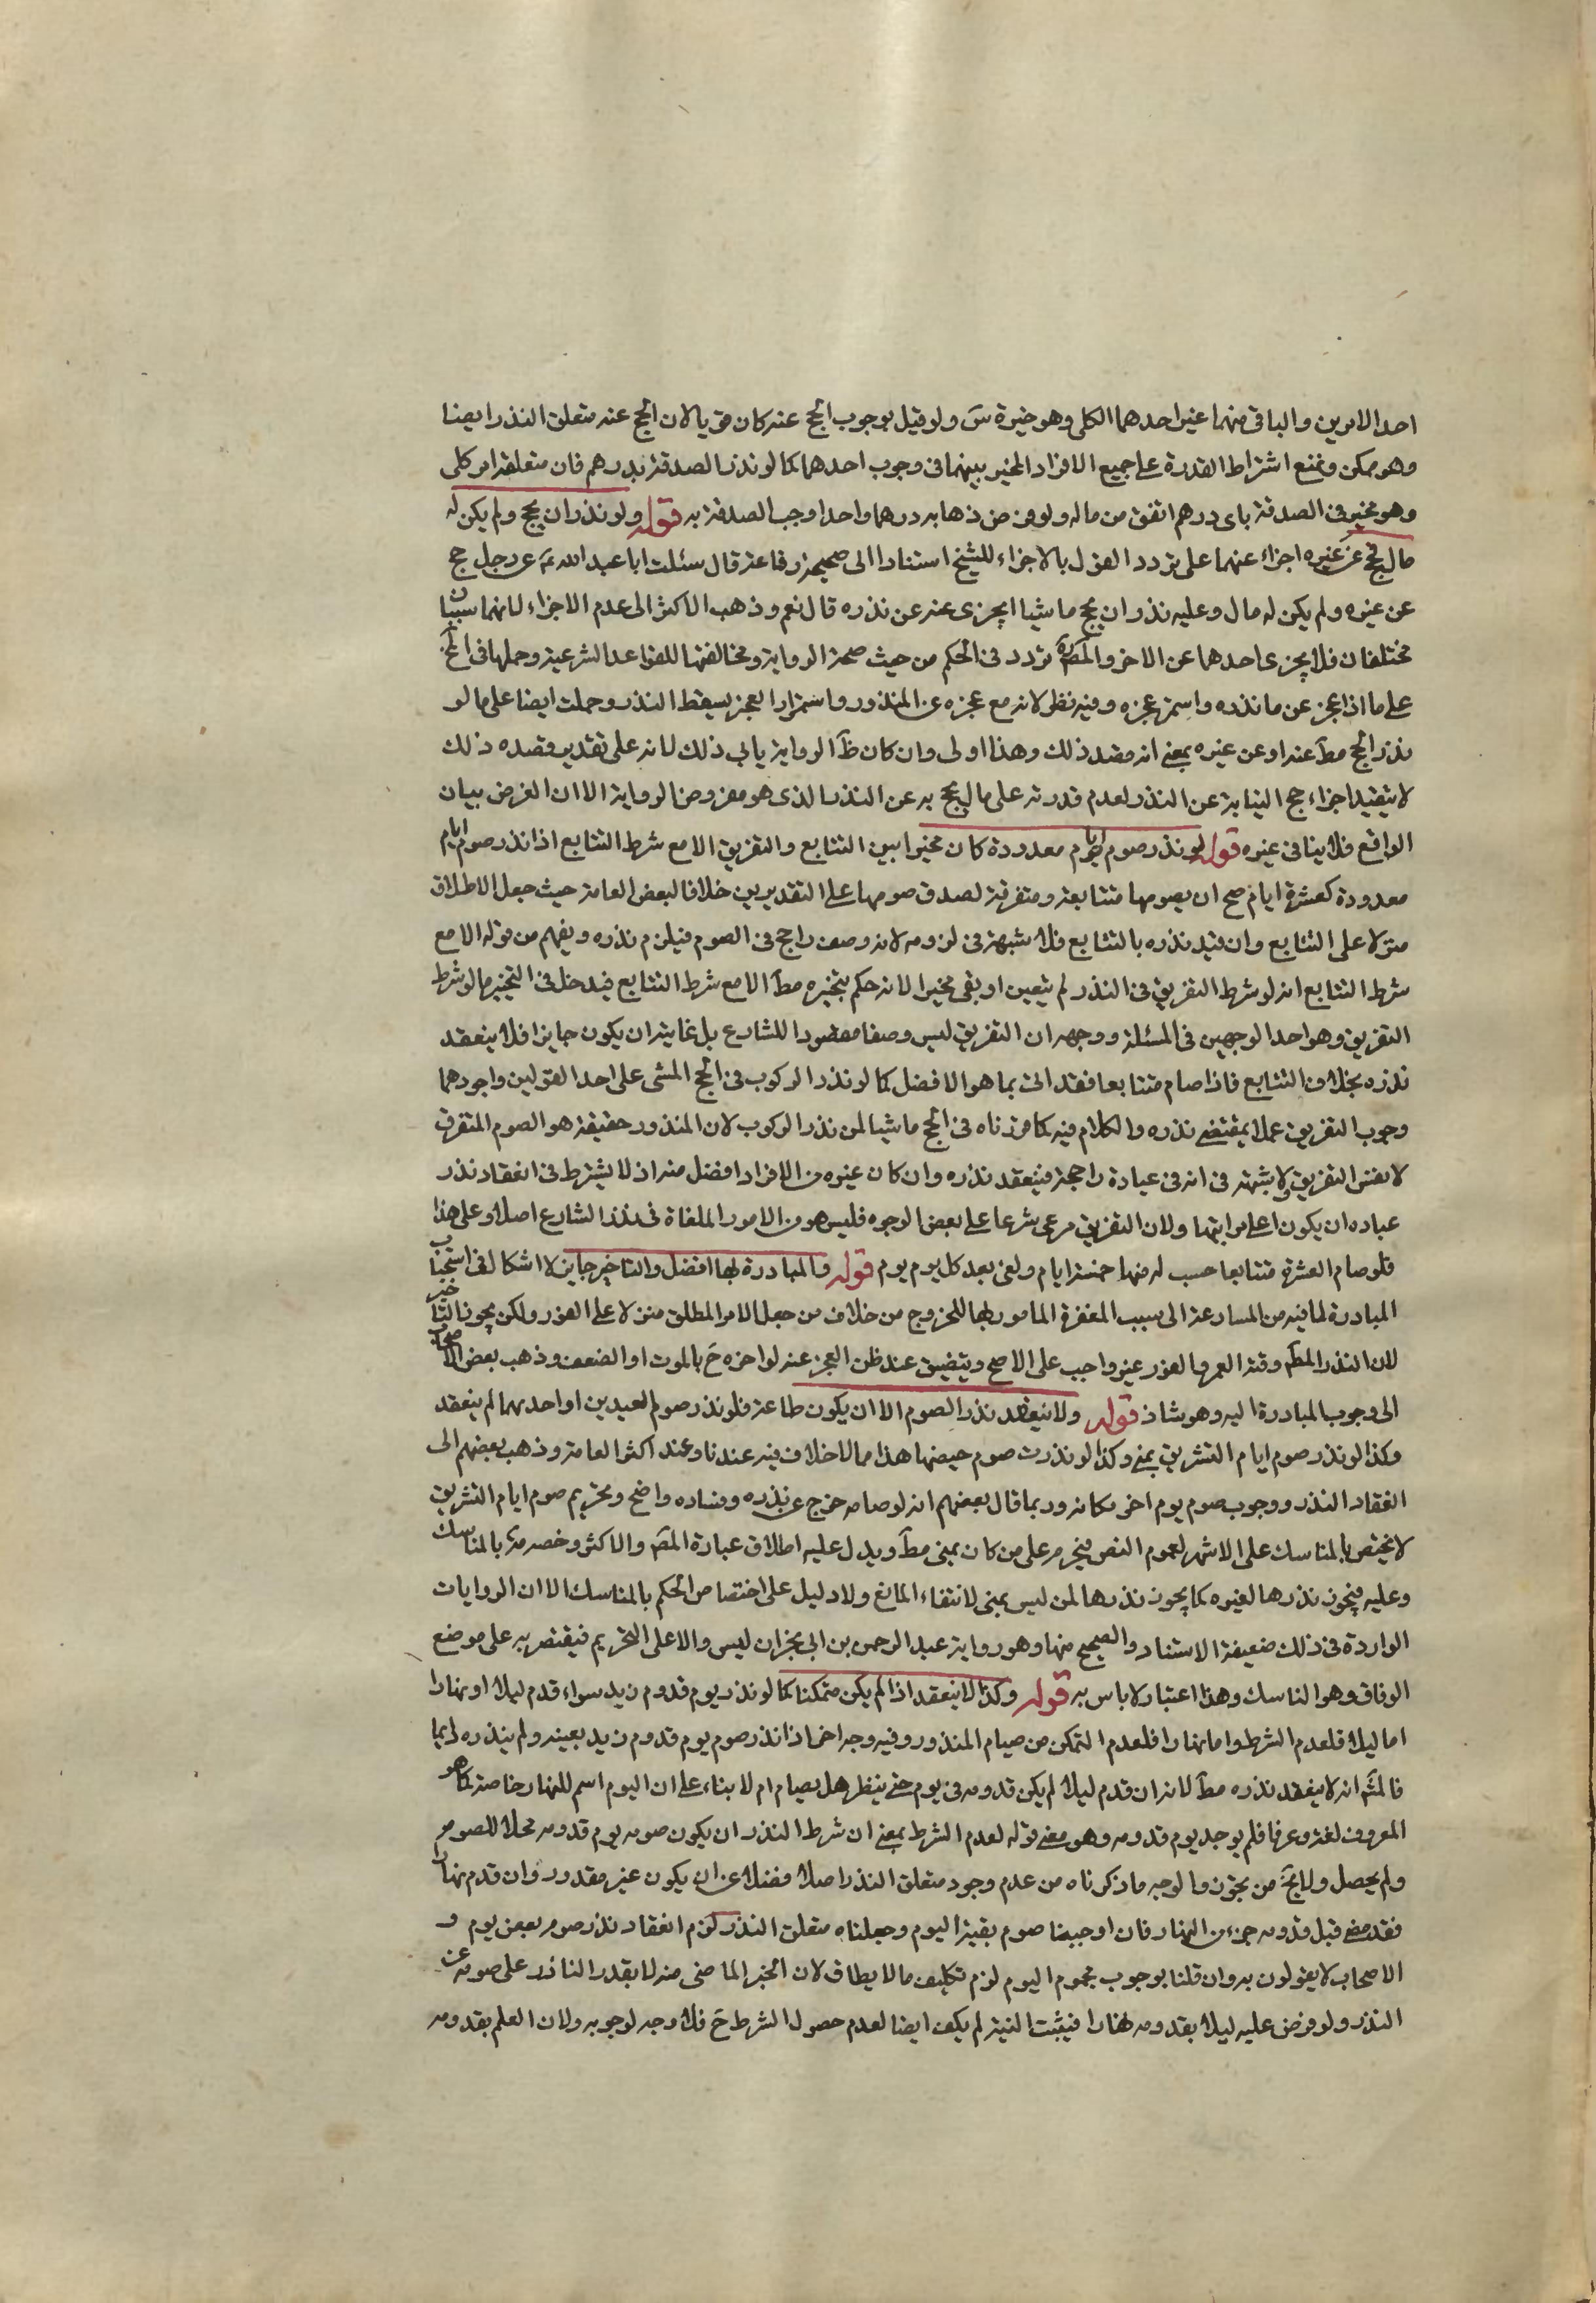 احد الامرين والباقى منهما عين احدهما الكلى وهو خيرة س ولو قيل بوجوب الحج عنه كان قويا لان الحج عنه متعلق النذر ايضا
وهو ممكن ونمنع اشتراط القدرة على جميع الافراد المخير بينهما فى وجوب احدهما كما لو نذر الصدقة بدرهم فان متعلقه امر كلى
وهو مخير فى الصدقة باى درهم اتفق من ماله ولو فرض ذهابه درهما واحدا وجب الصدقة به قوله ولو نذر ان يحج ولم يكن له
مال فحج عن غيره اجزاء عنهما على تردد القول بالاجزاء للشيخ استنادا الى صحيحة رفاعة قال سئلت ابا عبد الله ع عن رجل حج
عن غيره ولم يكن له مال وعليه نذر ان يحج ماشيا ايجزى عنه عن نذره قال نعم وذهب الاكثر الى عدم الاجزاء لانهما سببان
مختلفان فلا يجزى احدهما عن الاخر والمص ره تردد فى الحكم من حيث صحة الرواية ومخالفتها للقواعد الشرعية وحملها فى
على ما اذا عجز عن ما نذره واستمر عجزه وفيه نظر لانه مع عجزه عن المنذور واستمرار العجز يسقط النذر وحملت ايضا على ما لو
نذر الحج مط عنه او عن غيره بمعنى انه قصد ذلك وهذا اولى وان كان ظ الرواية يابى ذلك لانه على تقدير قصده ذلك
لا يتقيد اجزاء حج النيابة عن النذر لعدم قدرته على مال يحج به عن النذر الذى هو مفروض الرواية الا ان الغرض بيان
الواقع فلا ينافى غيره قوله لو نذر صوم ايام معدودة كان مخيرا بين التتابع والتفريق الا مع شرط التتابع اذا نذر صوم ايام
معدودة كعشرة ايام صح ان يصومها متتابعة ومتفرقة لصدق صومها على التقديرين خلافا لبعض العامة حيث جعل الاطلاق
منزلا على التتابع وان قيد نذره بالتتابع فلا شبهة فى لزومه لانه وصف راجح فى الصوم فيلزم نذره ويفهم من قوله الا مع
شرط التتابع انه لو شرط التفريق فى النذر لم يتعين او بقى مخيرا لانه حكم بتخيره مط الا مع شرط التتابع فيدخل فى التخيير ما لو شرط
التفريق وهو احد الوجهين فى المسئلة ووجهه ان التفريق ليس وصفا مقصودا للشارع بل غايته ان يكون جايزا فلا ينعقد
نذره بخلاف التتابع فاذا صام متتابعا فقد اتى بما هو الافضل كما لو نذر الركوب فى الحج المشى على احد القولين واجودهما
وجوب التفريق عملا بمقتضى نذره والكلام فيه كما قررناه فى الحج ماشيا لمن نذر الركوب لان المنذور حقيقة هو الصوم المتفرق
لا نفس التفريق ولا شبهة فى انه فى عبادة راجحة فينعقد نذره وان كان غيره من الافراد افضل منه اذ لا يشترط فى انعقاد نذر
عباده ان يكون اعلى مراتبها ولان التفريق مرعى شرعا على بعض الوجوه فليس هو من الامور الملغاة فى نظر الشارع اصلا وعلى هذا
فلو صام العشرة متتابعا حسب له منها خمسة ايام ولغى بعد كل يوم يوم قوله والمبادرة بها افضل والتاخير جايز لا اشكال فى استحباب
المبادرة لما فيه من المسارعة الى سبب المغفرة المامور بها للخروج من خلاف من جعل الامر المطلق منزلا على الفور ولكن يجوز التاخير
لان النذر المط وقته العمر والفور غير واجب على الاصح ويتضيق عند ظن العجز عنه لو اخره ح بالموت او الضعف وذهب بعض الاصحاب
الى وجوب المبادرة اليه وهو شاذ قوله ولا ينعقد نذر الصوم الا ان يكون طاعة فلو نذر صوم العيدين او احدهما لم ينعقد
وكذا لو نذر صوم ايام التشريق بمنى وكذا لو نذرت صوم حيضها هذا مما لا خلاف فيه عندنا وعند اكثر العامة وذهب بعضهم الى
انعقاد النذر ووجوب صوم يوم اخر مكانه وربما قال بعضهم انه لو صامه خرج عن نذره وفساده واضح وتحريم صوم ايام التشريق
لا يختص بالمناسك على الاشهر لعموم النص فيحرم على من كان بمنى مط ويدل عليه اطلاق عبارة المص والاكثر وخصه بالمناسك
وعليه فيجوز نذرها لغيره كما يجوز نذرها لمن ليس بمنى لانتفاء المانع ولا دليل على اختصاص الحكم بالمناسك الا ان الروايات
الواردة فى ذلك ضعيفة الاستناد والصحيح منها وهو رواية عبد الرحمن بن ابى نجران ليس دالا على التحريم فيقتصر به على موضع
الوفاق وهو الناسك وهذا اعتبار لا باس به قوله وكذا لا ينعقد اذا لم يكن متمكنا كما لو نذر يوم قدوم زيد سواء قدم ليلا او نهارا
اما ليلا فلعدم الشرط واما نهارا فلعدم التمكن من صيام المنذور وفيه وجه اخر اذا نذر صوم يوم قدوم زيد بعينه ولم ينذره دايما
فالمش انه لا ينعقد نذره مط لانه ان قدم ليلا لم يكن قدومه فى يوم حتى ينظر هل يصام ام لا بناء على ان اليوم اسم للنهار خاصة كما هو
المعروف لغة وعرفا فلم يوجد يوم قدومه وهو معنى قوله لعدم الشرط بمعنى ان شرط النذر ان يكون صومه يوم قدومه محلا للصوم
ولم يحصل ولا يخ من تجوز والوجه ما ذكرناه من عدم وجود متعلق النذر اصلا فضلا عن ان يكون غير مقدور وان قدم نهارا
فقد مضى قبل قدومه جزء من النهار فان اوجبنا صوم بقية اليوم وجعلناه متعلق النذر لزم انعقاد نذر صوم بعض يوم و
الاصحاب لا يقولون به وان قلنا بوجوب مجموع اليوم لزم تكليف ما لا يطاق لان الجزء الماضى منه لا يقدر الناذر على صومه عن
النذر ولو فرض عليه ليلا بقدومه نهارا فيثبت النية لم يكف ايضا لعدم حصول الشرط ح فلا وجه لوجوبه ولان العلم بقدومه